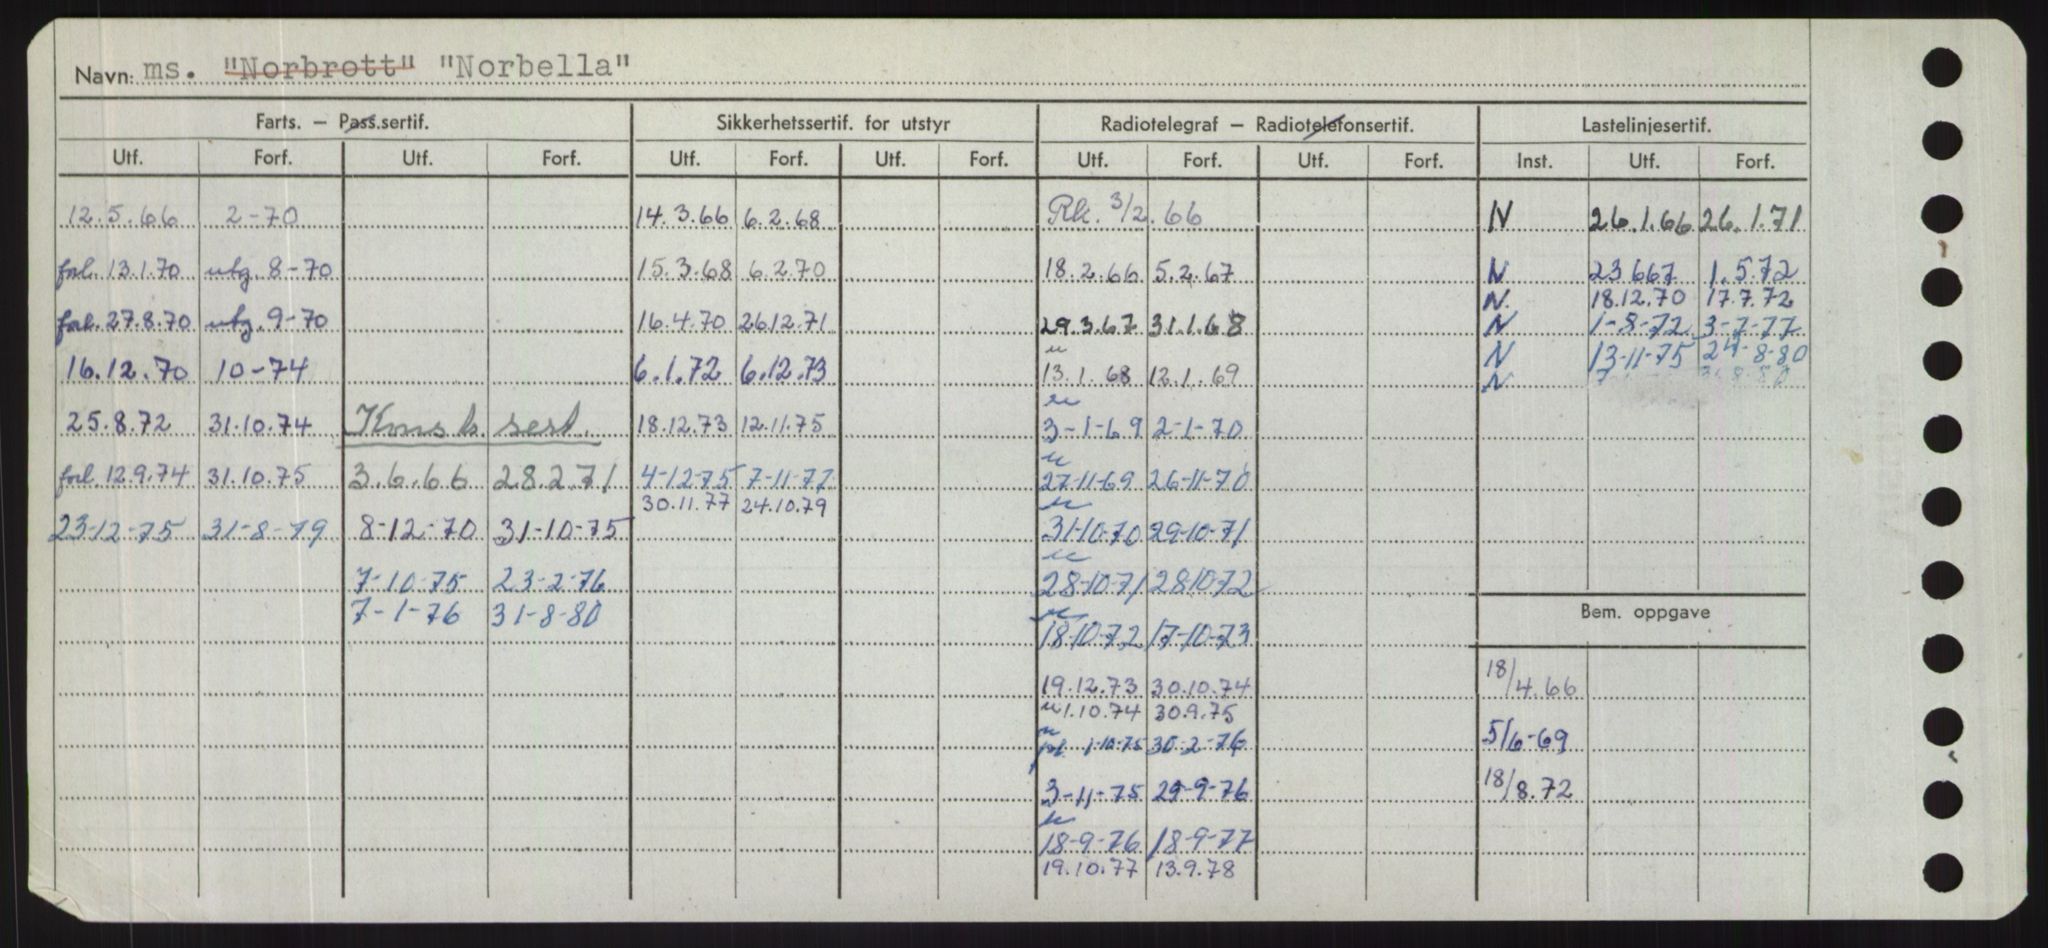 Navn: ms. "Norbrott" "Norbella"
Farts. – Pass.sertif. Sikkerhetssertif. for utstyr Radiotelegraf – Radiotelefonsertif. Lastelinjesertif.
Utf. Forf. Utf. Forf. Utf. Forf. Utf. Forf. Utf. Forf. Utf. Forf. Inst. Utf. Forf.
12.5.66 2-70 14.3.66 6.2.68 Rk. 3/2.66 N 26.1.66 26.1.71
forl. 13.1.70 utg. 8-70 15.3.68 6.2.70 18.2.66 5.2.67 N 23.667 1.5.72
N 18.12.70 17.7.72
forl. 27.8.70 utg. 9-70 16.4.70 26.12.71 29.3.67 31.1.68 N 1-8-72 3-7-77
16.12.70 10-74 6.1.72 6.12.73 13.1.68 12.1.69 N 13-11-75 24-8-80
N
25.8.72 31.10.74 Konst. sert. 18.12.73 12.11.75 3-1-69 2-1-70
forl. 12.9.74 31.10.75 3.6.66 28.2.71 4-12-75 7-11-77 27-11-69 26-11-70
30.11.77 24.10.79
23-12-75 31-8-79 8-12-70 31-10-75 31-10-70 29-10-71
7-10-75 23-2-76 28-10-71 28-10-72
7-1-76 31-8-80 Bem. oppgave
18-10-72 17-10-73
19.12.73 30.10.74 18/4.66
1.10.74 30.9.75
1-10-75 30-2-76 5/6-69
3-11-75 29-9-76 18/8.72
18-9-76 18-9-77
19.10.77 13.9.78